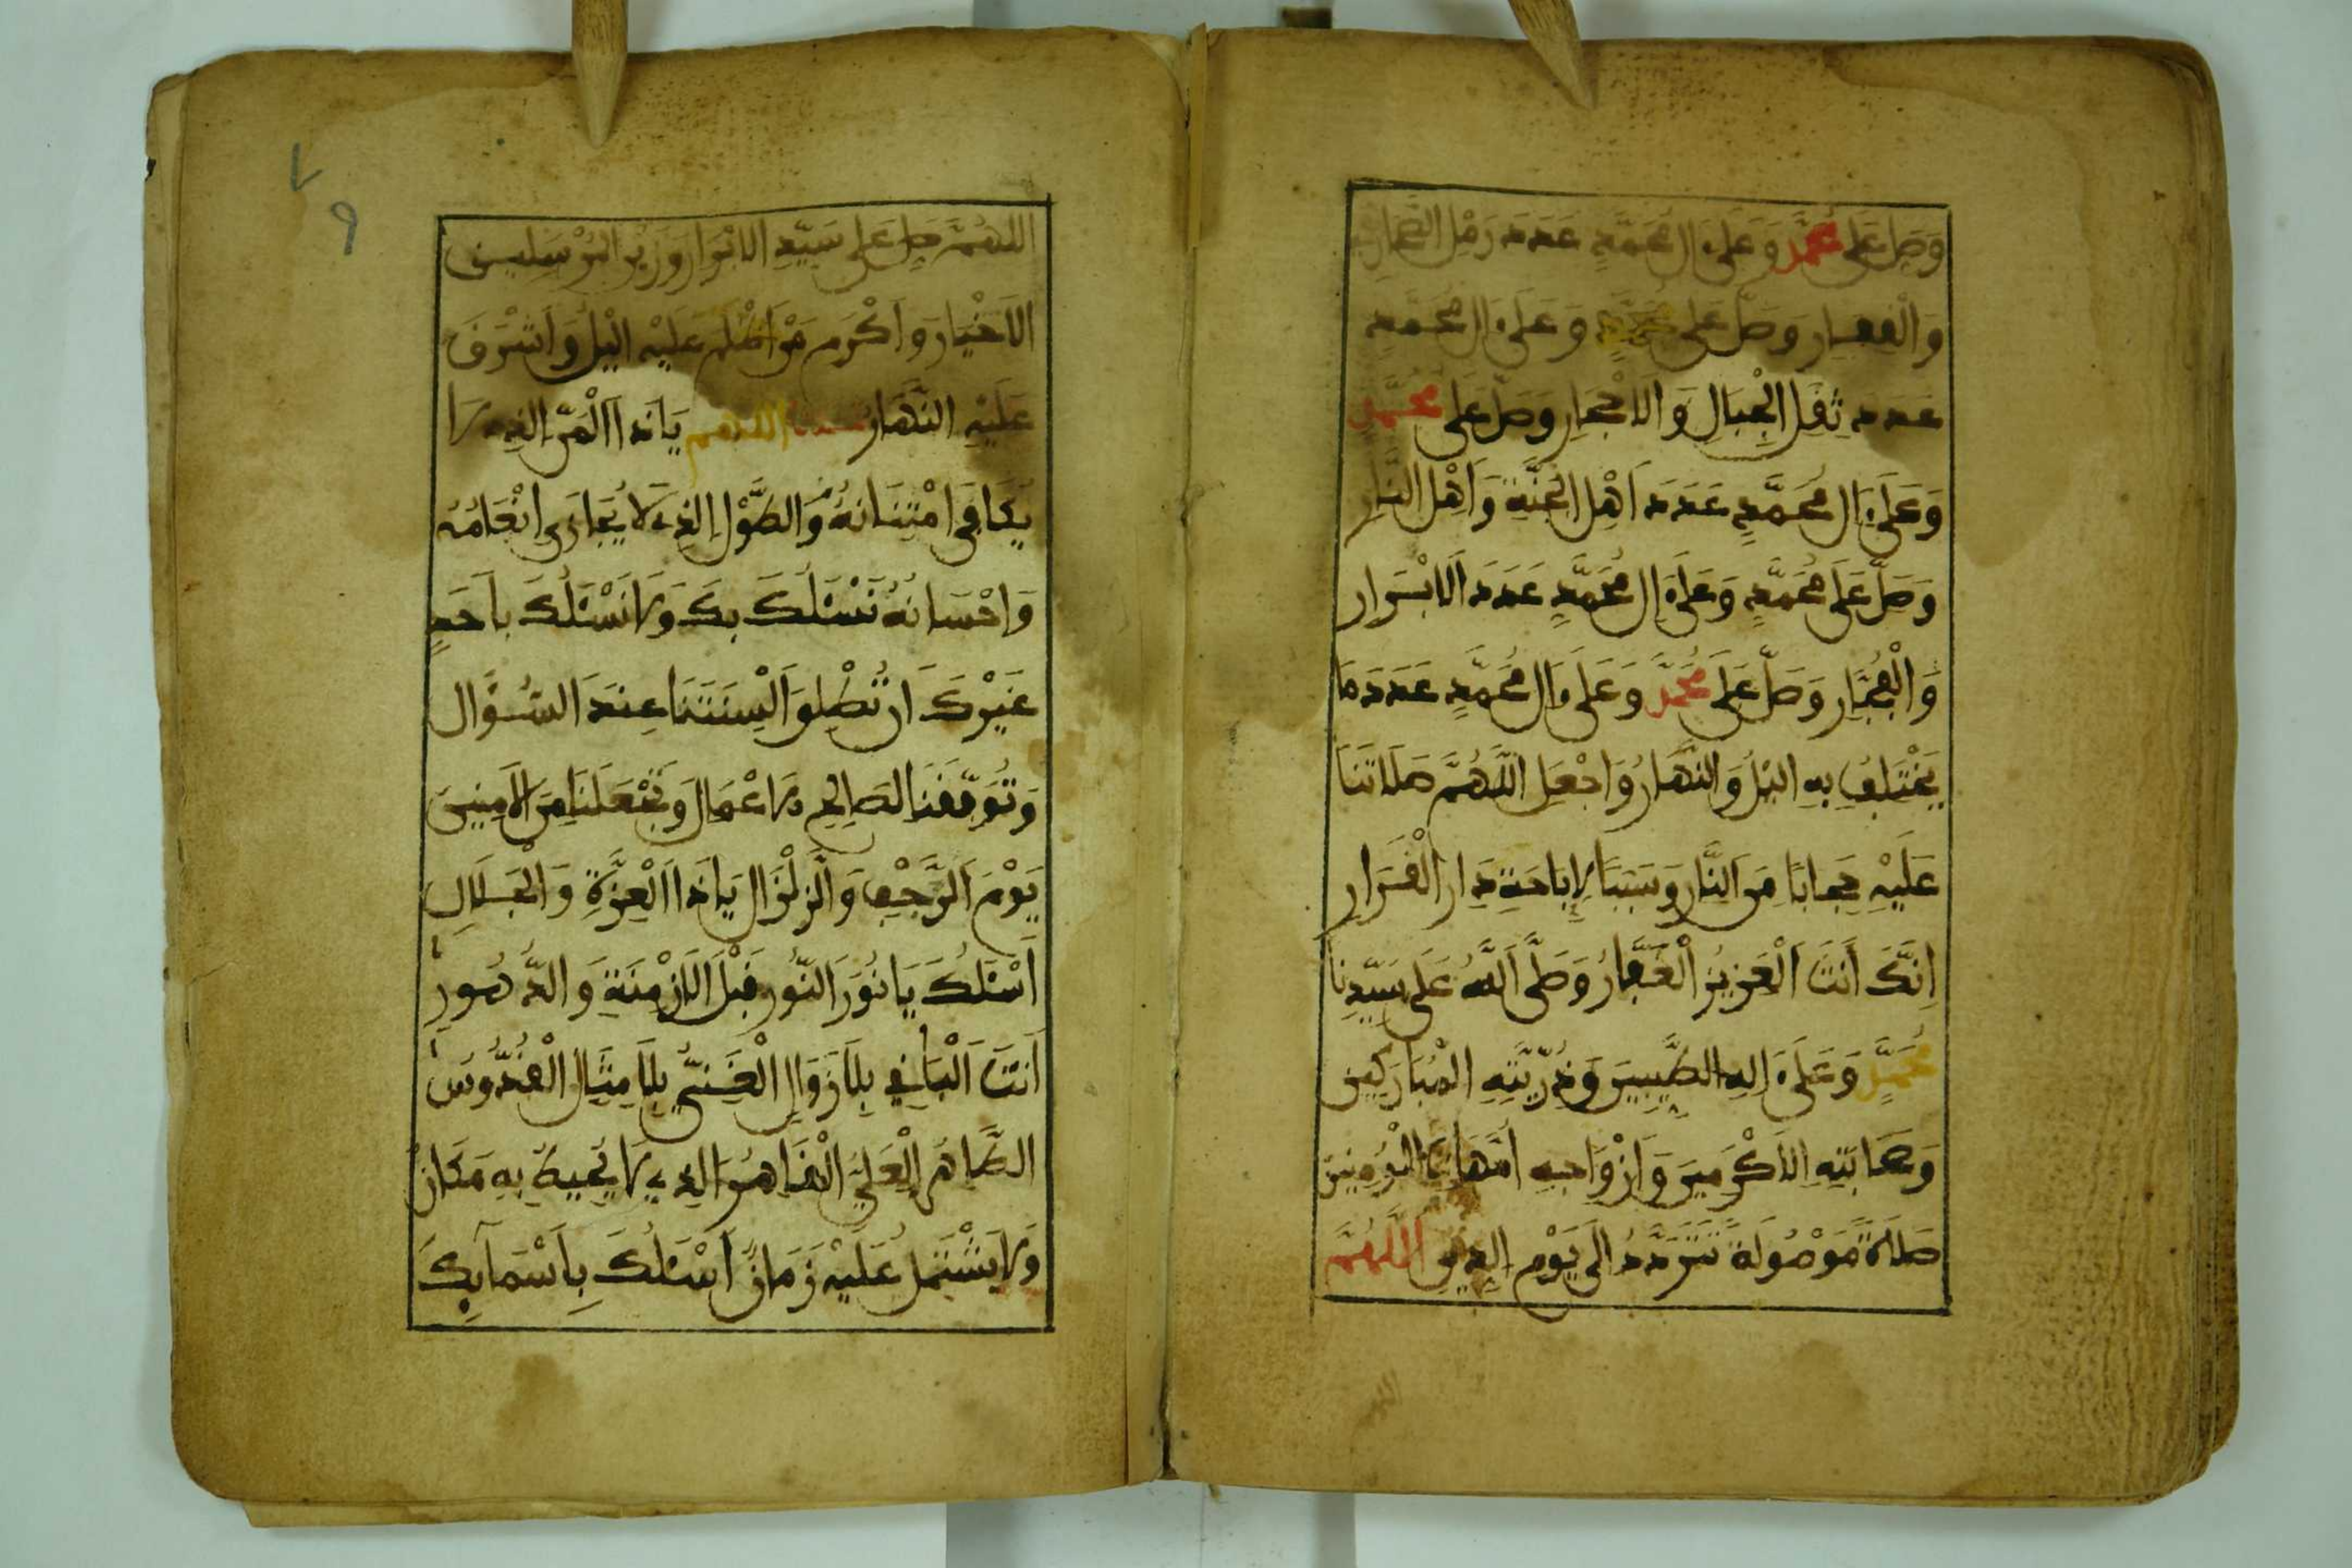 وَصَلِّ عَلَى مُحَمَّدٍ وَعَلَى ءَالِ مُحَمَّدٍ عَدَدَ رَمْلِ الصَّحَارِي
وَالْقِفَارِ وَصَلِّ عَلَى مُحَمَّدٍ وَعَلَى ءَالِ مُحَمَّدٍ
عَدَدَ ثِقَلِ الْجِبَالِ وَالْاَحْجَارِ وَصَلِّ عَلَى مُحَمَّدٍ
وَعَلَى ءَالِ مُحَمَّدٍ عَدَدَ اَهْلِ الْجَنَّةِ وَاَهْلِ النَّارِ
وَصَلِّ عَلَى مُحَمَّدٍ وَعَلَى ءَالِ مُحَمَّدٍ عَدَدَ الَابْرَارِ
وَالْفُجَّارِ وَصَلِّ عَلَى مُحَمَّدٍ وَعَلَى ءَالِ مُحَمَّدٍ عَدَدَ مَا
يَخْتَلِفُ بِهِ اليْلُ وَالنَّهَارُ وَاجْعَلِ اللَّهُمَّ صَلَاتَنَا
عَلَيْهِ حِجَابًا مِّنَ النَّارِ وَسَبَبًا لِإِبَاحَةِ دَارِ الْقَرَارِ
اِنَّكَ أَنتَ الْعَزِيزُ الْغَفَّارُ وَصَلَّى اللَّهُ عَلَى سَيِّدِنَا
مُحَمَّدٍ وَعَلَى ءَالِهِ الطَّيِّبِينَ وَذُرِّيَّتِهِ الْمُبَارَكِينَ
وَصَحَابَتِهِ الَاكْرَمِينَ وَأَزْوَاجِهِ أُمَّهَاتِ الْمُومِنِينَ
صَلَاةً مَوْصُولَةً تَتَرَدَّدُ اِلَى يَوْمِ الدِّينِ اللَّهُمَّ
اللَّهُمَّ صَلِّ عَلَى سَيِّدِ الَابْرَارِ وَزَيْنِ الْمُرْسَلِينَ
الَاخْيَارِ وَاَكْرَمِ مَنْ اَظْلَمَ عَلَيْهِ اليْلُ وَأَشْرَقَ
عَلَيْهِ النَّهَارُ اللَّهُمَّ يَا ذَا الْمَنِّ الَّذِي لَا
يُكَافَى امْتِنَانُهُ وَالطَّوْلِ الَّذِي لَا يُجَازَى اِنْعَامُهُ
وَاِحْسَانُهُ نَسْئَلُكَ بِكَ وَلَا نَسْئَلُكَ بِأَحَدٍ
غَيْرِكَ اَن تُطْلِقَ أَلْسِنَتَنَا عِندَ السُّؤَالِ
وَتُوَفِّقَنَا لِصَالِحِ الَاعْمَالِ وَتَجْعَلَنَا مِنَ الَامِنِينَ
يَوْمَ الرَّجْفِ وَالزِّلْزَالِ يَا ذَا الْعِزَّةِ وَالْجَلَالِ
أَسْئَلُكَ يَا نُورَ النُّورِ قَبْلَ الَازْمِنَةِ وَالدُّهُورِ
أَنتَ الْبَاقِي بِلَا زَوَالٍ الْغَنِيُّ بِلَا مِثَالٍ الْقُدُّوسُ
الطَّاهِرُ الْعَلِيُّ الْقَاهِرُ الَّذِي لَا يُحِيطُ بِهِ مَكَانٌ
وَلَا يَشْتَمِلُ عَلَيْهِ زَمَانٌ أَسْئَلُكَ بِأَسْمَآئِكَ